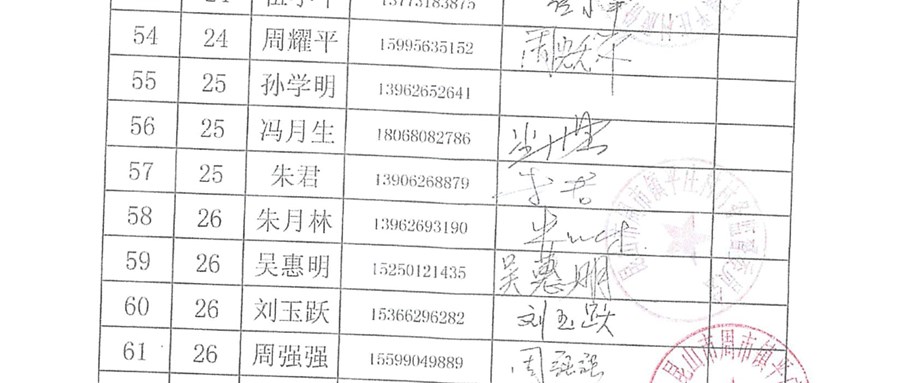 54 24 周耀平 15995635152 周跃平
55 25 孙学明 13962652641
56 25 冯月生 18068082786
57 25 朱君 13906268879 朱君
58 26 朱月林 13962693190
59 26 吴惠明 15250121435 吴惠明
60 26 刘玉跃 15366296282 刘玉跃
61 26 周强强 15599049889 周强强
昆山市周市镇